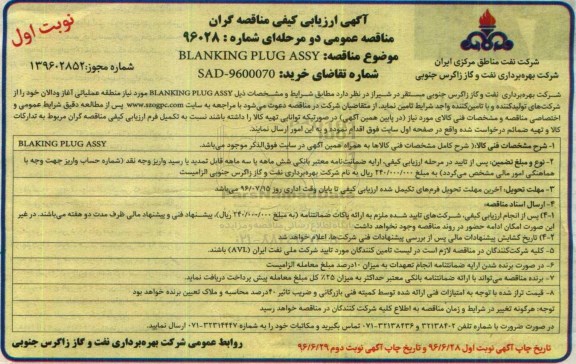 آگهی ارزیابی کیفی مناقصه گران
نوبت اول
مناقصه عمومی دو مرحله‌ای شماره : ۹۶۰۲۸
موضوع مناقصه: BLANKING PLUG ASSY
شماره تقاضای خرید: SAD-9600070
شرکت نفت مناطق مرکزی ایران
شرکت بهره‌برداری نفت و گاز زاگرس جنوبی
شماره مجوز: ۱۳۹۶۰۲۸۵۲
شرکت بهره‌برداری نفت و گاز زاگرس جنوبی مستقر در شیراز در نظر دارد مطابق شرایط و مشخصات ذیل BLANKING PLUG ASSY مورد نیاز منطقه عملیاتی آغار ودالان خود را از
شرکت‌های تولیدکننده و یا تامین‌کننده واجد شرایط تامین نماید. از متقاضیان شرکت در مناقصه دعوت می‌شود با مراجعه به سایت www.szogpc.com پس از مطالعه دقیق شرایط عمومی و
اختصاصی مناقصه و مشخصات فنی کالای مورد نیاز (در پایین همین آگهی) در صورتیکه توانایی تهیه کالا را داشته باشند نسبت به تکمیل فرم ارزیابی کیفی مناقصه گران مربوط به تدارکات
کالا و تهیه ضمائم درخواست شده واقع در صفحه اول سایت فوق اقدام نموده و به این امور ارسال نمایند.
۱- شرح مشخصات فنی کالا:( شرح کامل مشخصات فنی کالاها به همراه همین آگهی در سایت فوق‌الذکر موجود می‌باشد. BLAKING PLUG ASSY
۲- نوع و مبلغ تضمین: پس از تایید در مرحله ارزیابی کیفی، ارایه ضمانت‌نامه معتبر بانکی شش ماهه یا سه ماهه قابل تمدید یا رسید واریز وجه نقد (شماره حساب واریز جهت وجه با
هماهنگی امور مالی مشخص می‌گردد) به مبلغ ۲۴۰/۰۰۰/۰۰۰ ریال به نام شرکت بهره‌برداری نفت و گاز زاگرس جنوبی الزامیست
۳- مهلت تحویل: آخرین مهلت تحویل فرم‌های تکمیل شده ارزیابی کیفی تا پایان وقت اداری روز ۹۶/۰۷/۱۵ می‌باشد
۴- ارسال اسناد مناقصه:
۴-۱) پس از انجام ارزیابی کیفی، شرکت‌های تایید شده ملزم به ارائه پاکات ضمانتنامه (به مبلغ ۲۴۰/۰۰۰/۰۰۰ ریال)، پیشنهاد فنی و پیشنهاد مالی ظرف مدت دو هفته می‌باشند. در غیر
این صورت امکان ادامه حضور در روند مناقصه وجود نخواهد داشت
۴-۲) تاریخ گشایش پیشنهادات مالی پس از بررسی پیشنهادات فنی شرکت‌ها، اعلام خواهد شد
۵- کلیه شرکت‌کنندگان در مناقصه لازم است در لیست تامین کنندگان مورد تایید شرکت ملی نفت ایران (AVL) باشند.
۶- در صورت برنده شدن ارایه ضمانتنامه انجام تعهدات به میزان ۱۰درصد مبلغ معامله الزامیست
۷- برنده مناقصه می‌تواند با ارائه ضمانتنامه بانکی معتبر حداکثر به میزان ۲۵٪ کل مبلغ معامله پیش پرداخت دریافت نماید.
۸- قیمت تراز شده با توجه به امتیازات فنی ارائه شده توسط کمیته فنی بازرگانی و ضریب تاثیر ۴۰درصد محاسبه و ملاک تعیین برنده خواهد بود
توجه: هرگونه تغییر در شرایط و زمان مناقصه به اطلاع کلیه شرکت کنندگان در مناقصه خواهد رسید
در صورت ضرورت با شماره تلفن ۳۲۱۳۸۴۰۲ و ۳۲۱۳۸۴۳۶-۰۷۱ تماس بگیرید و مکاتبات خود را به شماره ۳۲۳۱۴۴۴۷-۰۷۱ ارسال نمایید.
تاریخ چاپ آگهی نوبت اول ۹۶/۶/۲۸ و تاریخ چاپ آگهی نوبت دوم ۹۶/۶/۲۹
روابط عمومی شرکت بهره‌برداری نفت و گاز زاگرس جنوبی